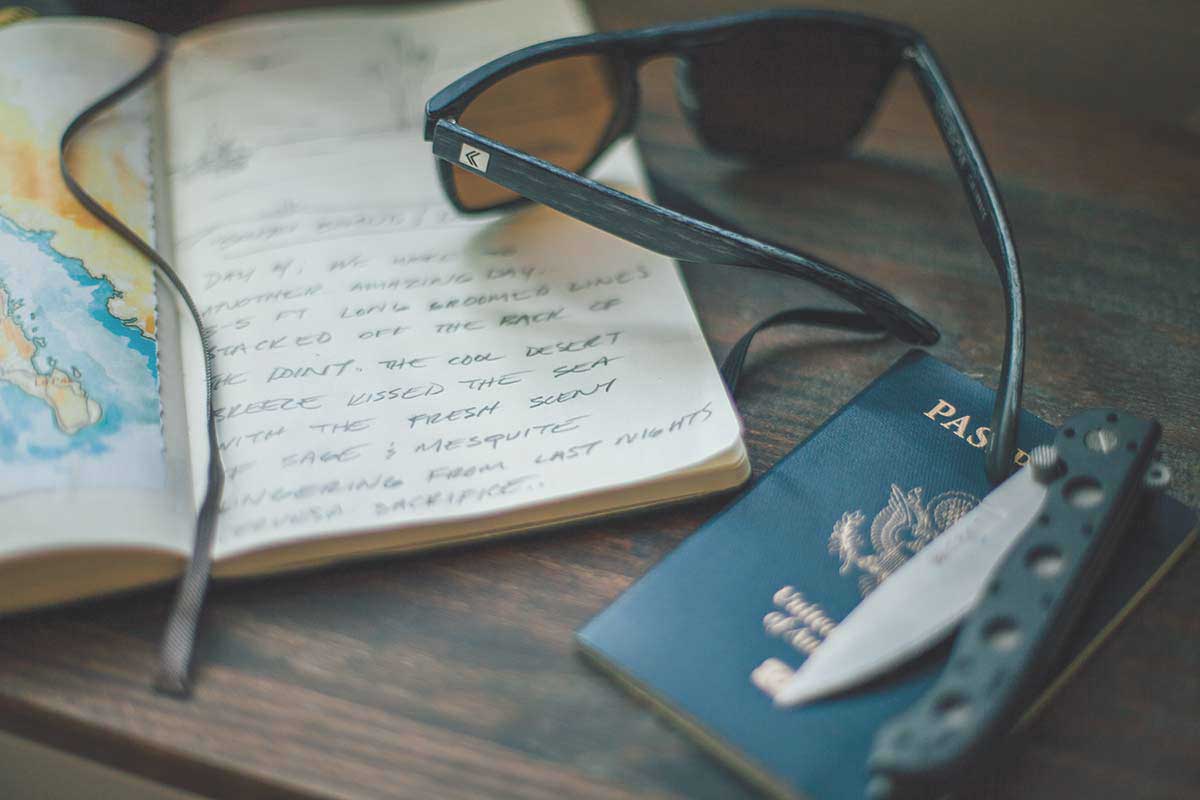 DAY 4, WE WAKE TO
ANOTHER AMAZING DAY..
3-5 FT LONG GROOMED LINES
STACKED OFF THE BACK OF
THE POINT. THE COOL DESERT
BREEZE KISSED THE SEA
WITH THE FRESH SCENT
OF SAGE & MESQUITE
LINGERING FROM LAST NIGHTS
SACRIFICE..
LA PAZ
PASP
United
of